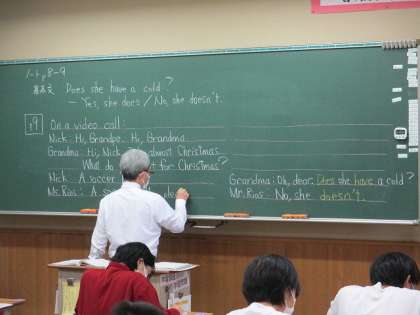 1-4 p8-9
基本文 Does she have a cold?
— Yes, she does / No, she doesn't.
p9 On a video call:
Nick: Hi, Grandpa. Hi, Grandma
Grandma: Hi, Nick almost Christmas.
What do for Christmas?
Nick: A soccer
Ms. Rios: A
Grandma: Oh, dear. Does she have a cold?
Mr. Rios: No, she doesn't.